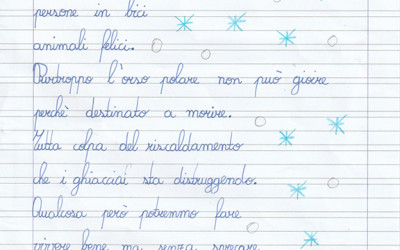 persone in bici
animali felici.
Purtroppo l'orso polare non può gioire
perchè destinato a morire.
Tutta colpa del riscaldamento
che i ghiacciai sta distruggendo.
Qualcosa però potremmo fare
vivere bene ma senza sprecare